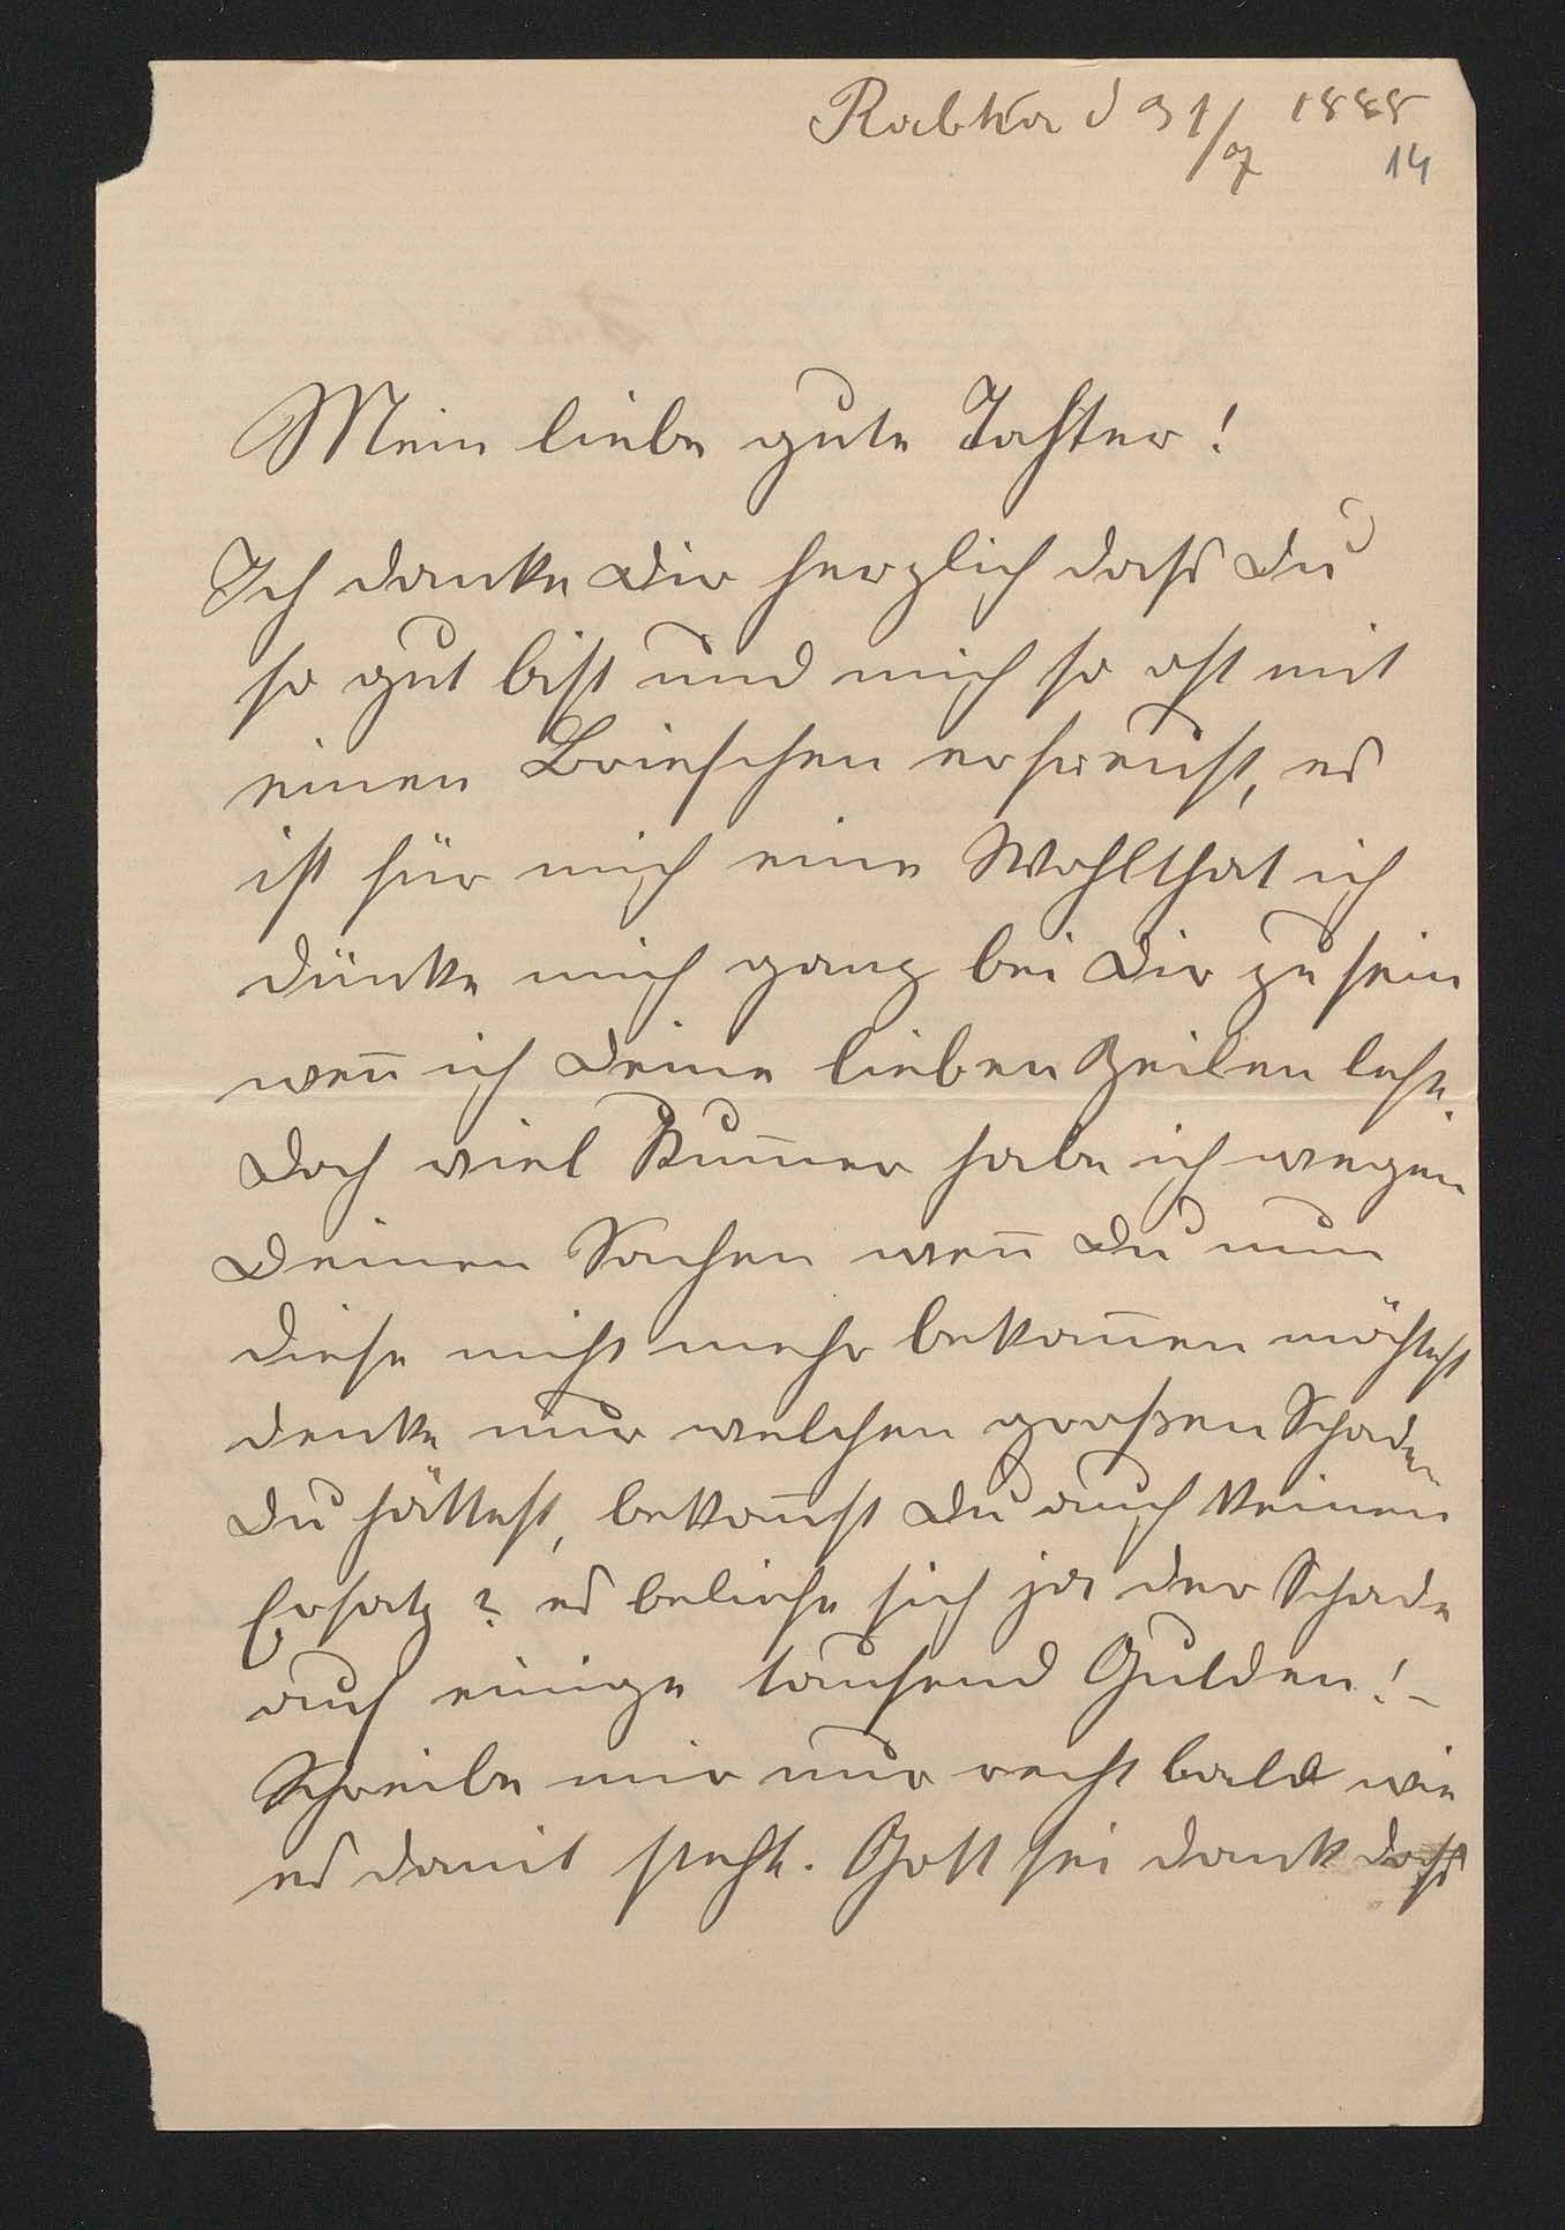 Rabka d 31/7 1888
14
Mein liebe gute Tochter!
Ich danke Dir herzlich dass Du
so gut bist und mich so oft mit
einen Briefchen erfreust, es
ist für mich eine Wohlthat ich
dünke mich ganz bei Dir zu sein
weñ ich Deine lieben Zeilen lese.
Doch viel Kum̅er habe ich wegen
Deinen Sachen weñ Du nun
diese nicht mehr bekom̅en möchtest
denke nur welchen großen Schaden
Du hättest, bekom̅st Du auch keinen
Ersatz? es beliefe sich ja der Schade
auf einige tausend Gulden! -
Schreibe mir nur recht bald wie
es damit steht. Gott sei dank dass